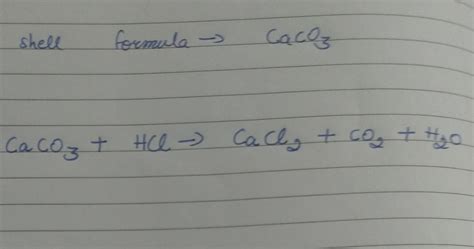 shell formula → CaCO₃
CaCO₃ + HCl → CaCl₂ + CO₂ + H₂O